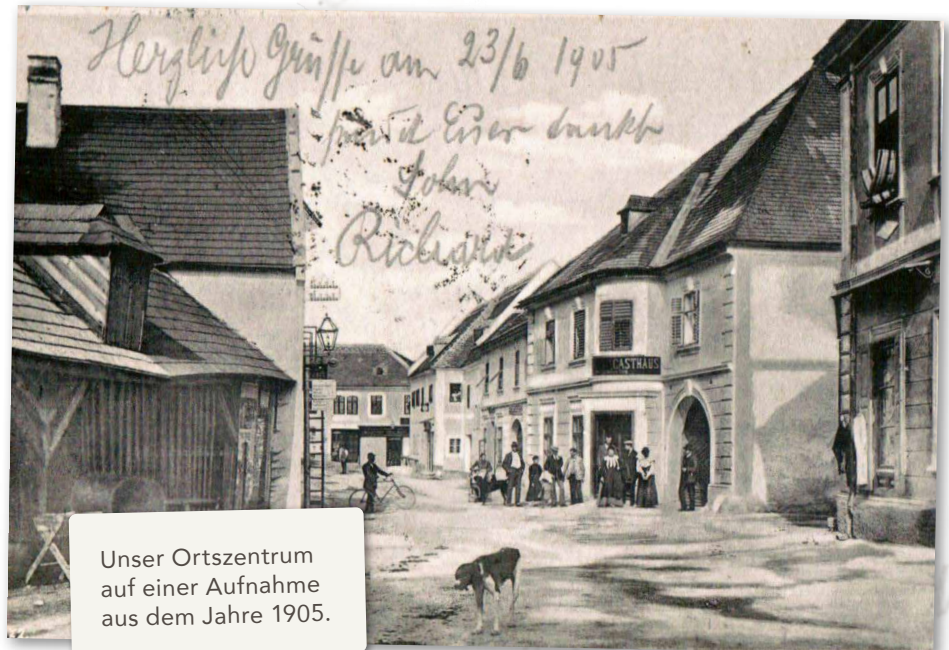 Herzliche Grüsse am 23/6 1905
Euer dankb
Sohn
Richard
GASTHAUS
Unser Ortszentrum
auf einer Aufnahme
aus dem Jahre 1905.